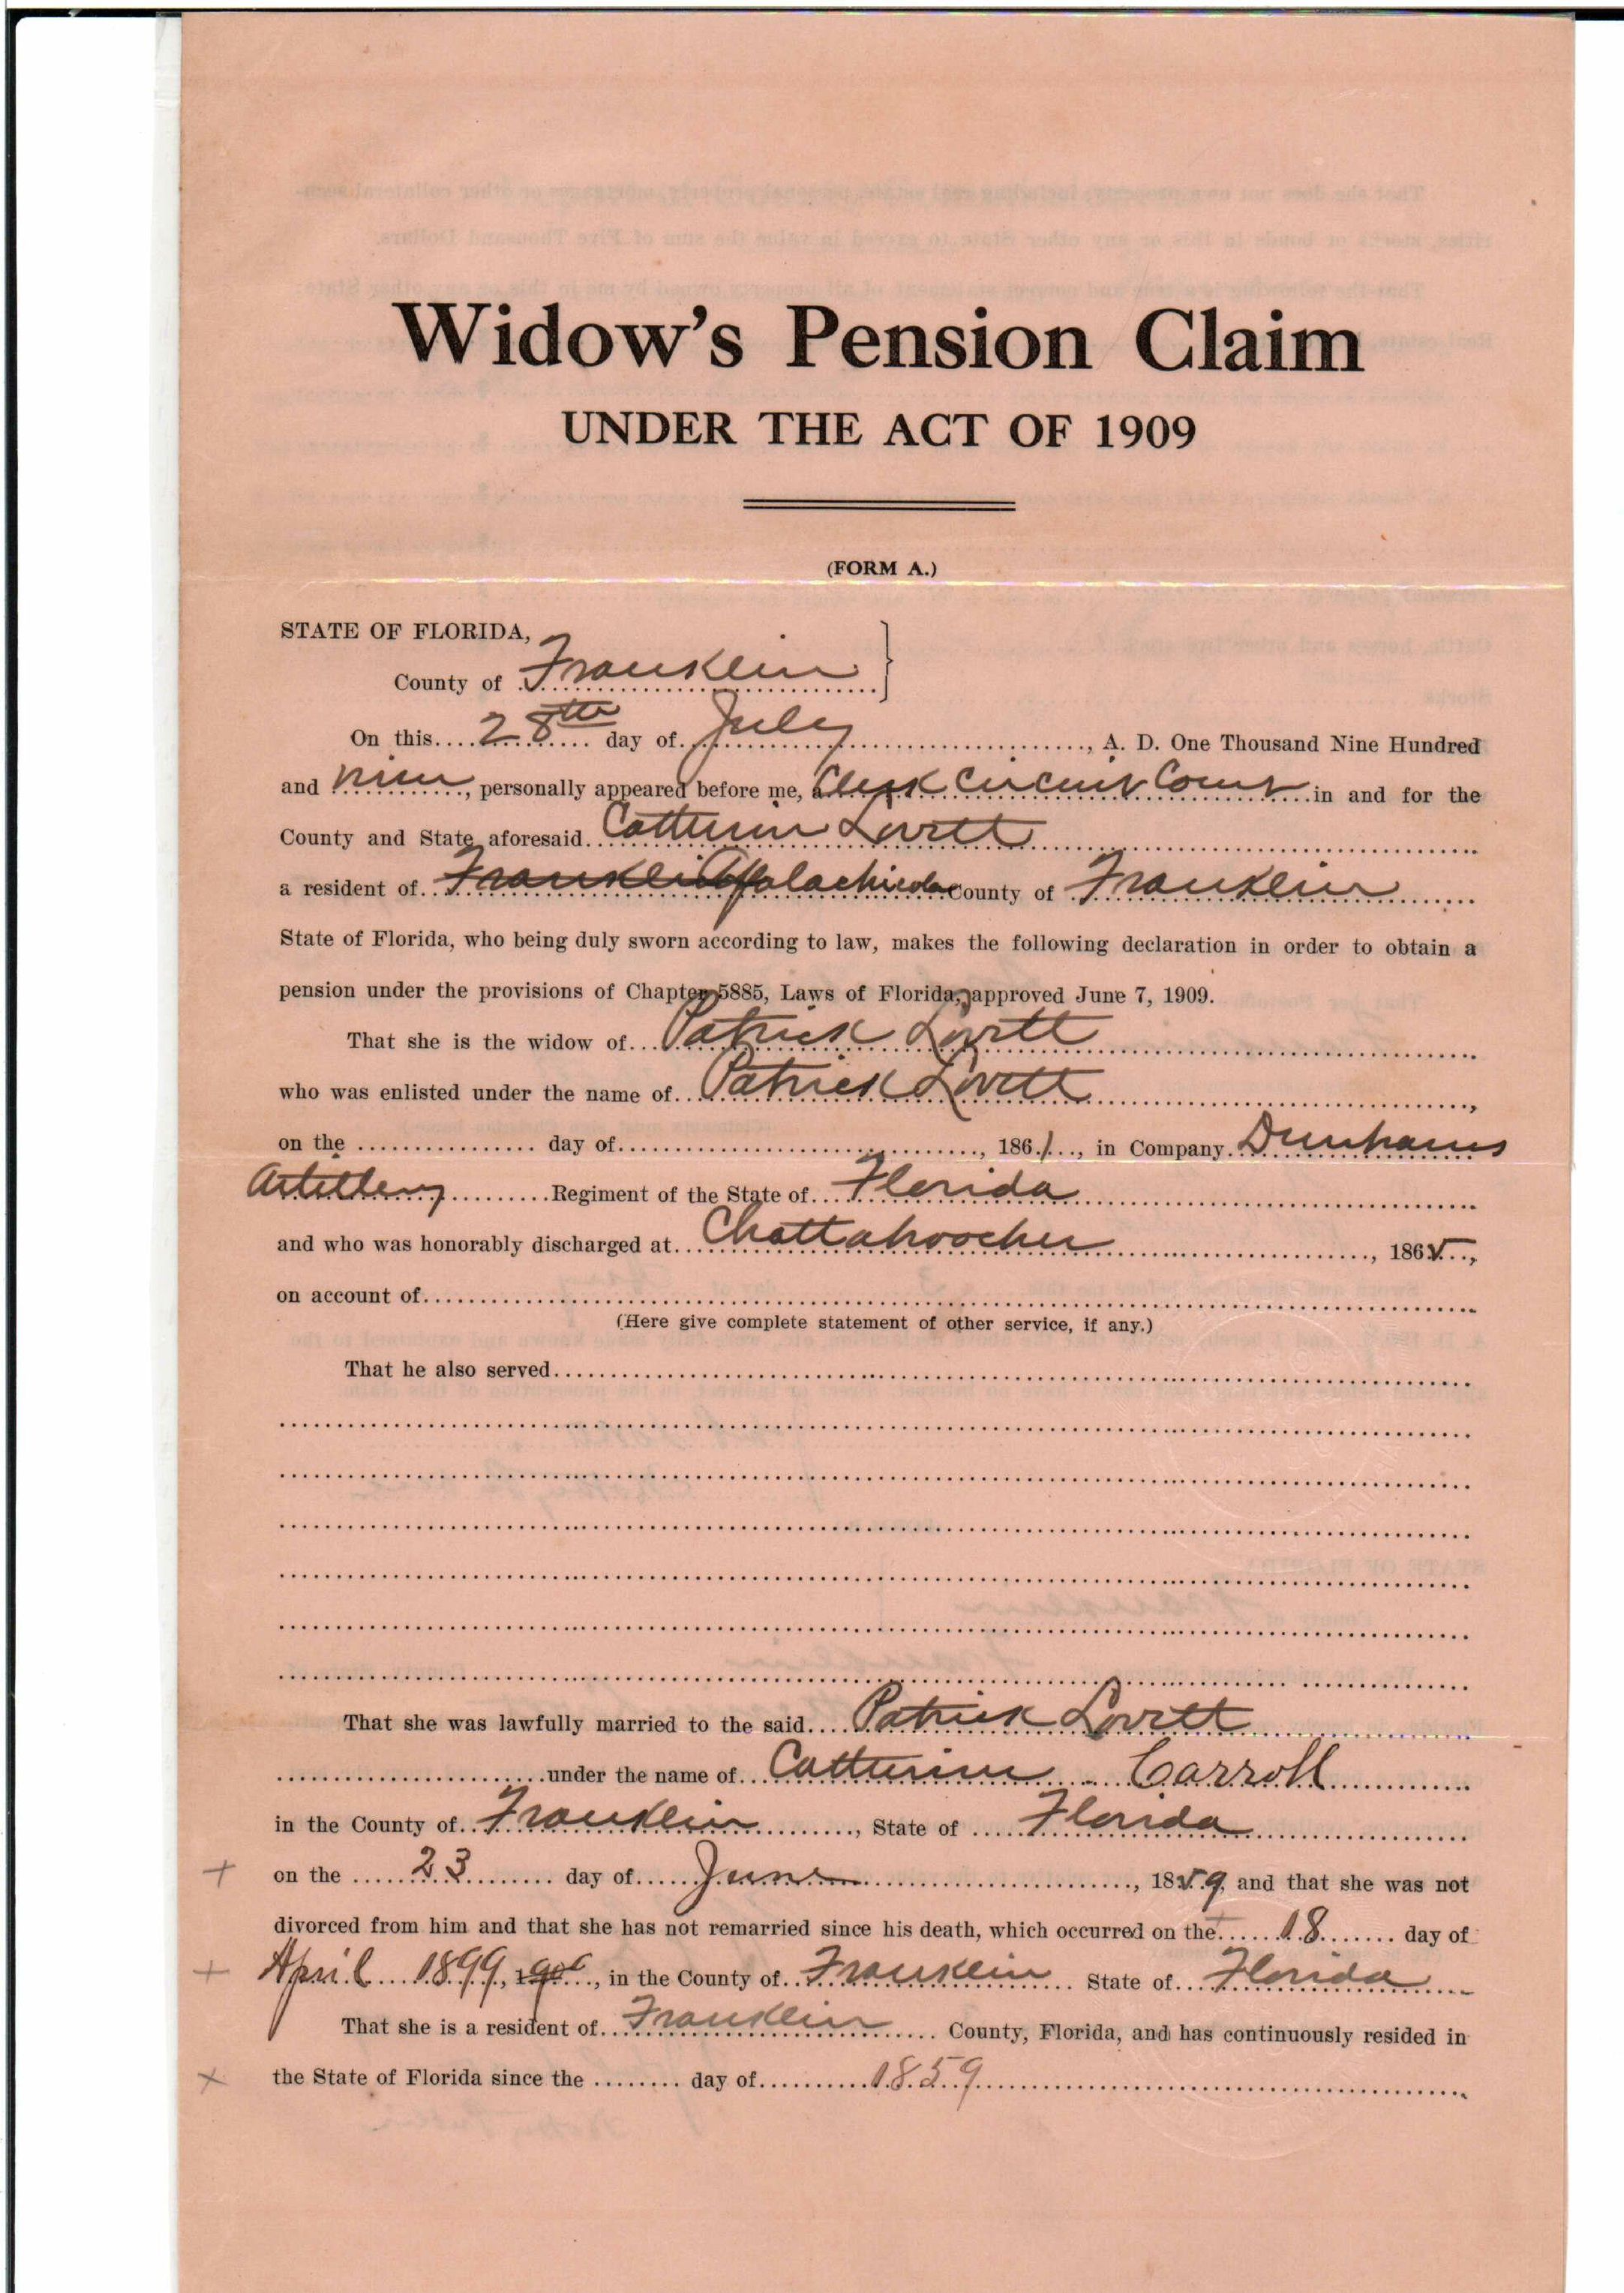 Widow's Pension Claim
UNDER THE ACT OF 1909
(FORM A.)
STATE OF FLORIDA,
County of Franklin
On this 28th day of July, A. D. One Thousand Nine Hundred
and nine, personally appeared before me, a Clerk Circuit Court in and for the
County and State aforesaid Catherine Lovett
a resident of Franklin Apalachicola County of Franklin
State of Florida, who being duly sworn according to law, makes the following declaration in order to obtain a
pension under the provisions of Chapter 5885, Laws of Florida, approved June 7, 1909.
That she is the widow of Patrick Lovett
who was enlisted under the name of Patrick Lovett,
on the day of, 1861, in Company Dunhams
Artillery Regiment of the State of Florida
and who was honorably discharged at Chattahoochee, 1865,
on account of
(Here give complete statement of other service, if any.)
That he also served
That she was lawfully married to the said Patrick Lovett
under the name of Catherine Carroll
in the County of Franklin, State of Florida
+ on the 23 day of June, 1859, and that she was not
divorced from him and that she has not remarried since his death, which occurred on the 18 day of
+ April 1899, 190, in the County of Franklin State of Florida
That she is a resident of Franklin County, Florida, and has continuously resided in
x the State of Florida since the day of 1859